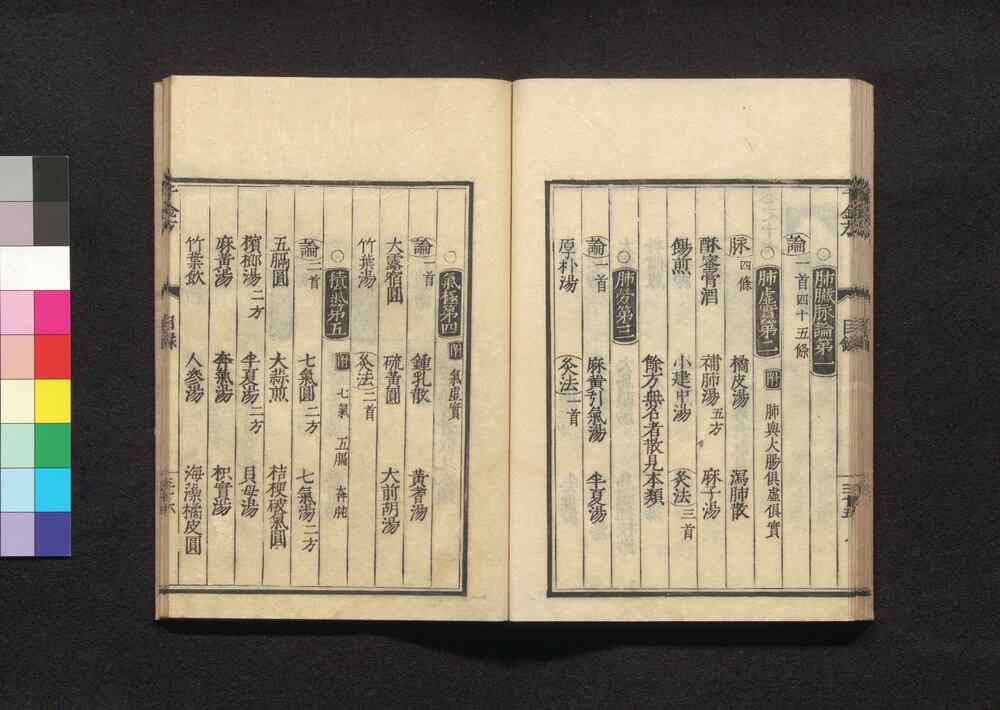 ○肺臟脉論第一
論一首四十五條
○肺虛實第二 附 肺與大腸俱虛俱實
脉四條 橘皮湯 瀉肺散
酥蜜膏酒 補肺湯五方 麻子湯
餳煎 小建中湯 灸法三首
餘方無名者散見本類
○肺勞第三
論一首 麻黃引氣湯 半夏湯
厚朴湯 灸法一首
○氣極第四 附 氣虛實
論一首 鍾乳散 黃耆湯
大露宿圓 硫黃圓 大前胡湯
竹葉湯 灸法二首
○積氣第五 附 七氣 五膈 奔肫
論二首 七氣圓二方 七氣湯二方
五膈圓 大蒜煎 桔梗破氣圓
檳榔湯二方 半夏湯二方 貝母湯
麻黃湯 奔氣湯 枳實湯
竹葉飲 人參湯 海藻橘皮圓
千金方
目錄
千金方
目錄